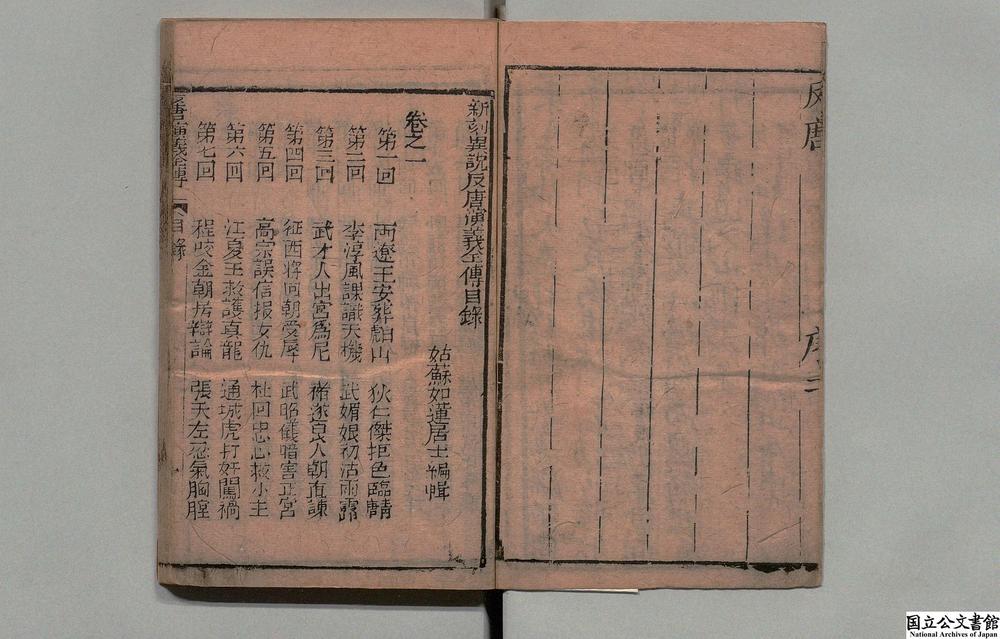 反唐
序二
新刻異說反唐演義全傳目錄
姑蘇如蓮居士編輯
卷之一
第一回 兩遼王安葬白山 狄仁傑拒色臨清
第二回 李淳風課識天機 武媚娘初沾雨露
第三回 武才人出宮為尼 褚遂良入朝直諫
第四回 征西將回朝受辱 武昭儀暗害正宮
第五回 高宗誤信報女仇 杜回忠心救小主
第六回 江夏王救護真龍 通城虎打奸闖禍
第七回 程咬金朝房辯論 張天左忿氣胸膛
反唐演義全傳
目錄
国立公文書館
National Archives of Japan